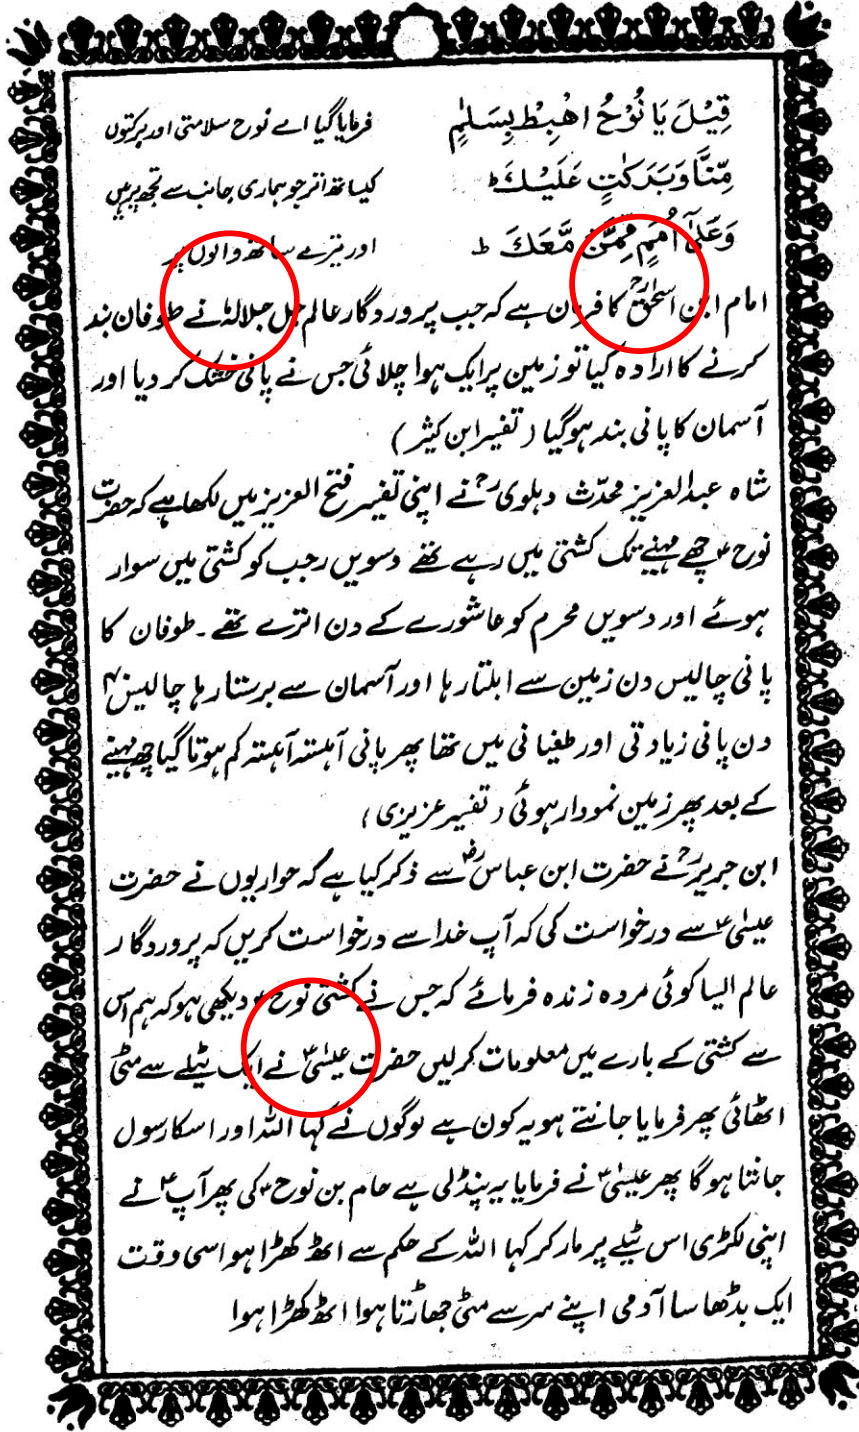 قِيْلَ يَا نُوْحُ اهْبِطْ بِسَلٰمٍ فرمایا گیا اے نوح سلامتی اور برکتوں
مِّنَّا وَبَرَكٰتٍ عَلَيْكَ ط کیساتھ اتر جو ہماری جانب سے تجھ پر ہیں
وَعَلٰٓى اُمَمٍ مِّمَّنْ مَّعَكَ ط اور تیرے ساتھ والوں پر
امام ابن اسحٰقؒ کا فرمان ہے کہ جب پروردگار عالم جل جلالہٗ نے طوفان بند
کرنے کا ارادہ کیا تو زمین پر ایک ہوا چلائی جس نے پانی خشک کر دیا اور
آسمان کا پانی بند ہوگیا (تفسیر ابن کثیر)
شاہ عبدالعزیز محدّث دہلویؒ نے اپنی تفسیر فتح العزیز میں لکھا ہے کہ حضرت
نوحؑ چھے مہینے تک کشتی میں رہے تھے دسویں رجب کو کشتی میں سوار
ہوئے اور دسویں محرم کو عاشورے کے دن اترے تھے۔ طوفان کا
پانی چالیس دن زمین سے ابلتا رہا اور آسمان سے برستا رہا چالیس۴۰
دن پانی زیادتی اور طغیانی میں تھا پھر پانی آہستہ آہستہ کم ہوتا گیا چھ مہینے
کے بعد پھر زمین نمودار ہوئی (تفسیر عزیزی)
ابن جریرؒ نے حضرت ابن عباسؓ سے ذکر کیا ہے کہ حواریوں نے حضرت
عیسٰیؑ سے درخواست کی کہ آپ خدا سے درخواست کریں کہ پروردگار
عالم ایسا کوئی مردہ زندہ فرمائے کہ جس نے کشتی نوحؑ دیکھی ہو کہ ہم اس
سے کشتی کے بارے میں معلومات کرلیں حضرت عیسٰیؑ نے ایک ٹیلے سے مٹی
اٹھائی پھر فرمایا جانتے ہو یہ کون ہے لوگوں نے کہا اللہ اور اسکا رسول
جانتا ہو گا پھر عیسٰیؑ نے فرمایا یہ پنڈلی ہے حام بن نوحؑ کی پھر آپؑ نے
اپنی لکڑی اس ٹیلے پر مار کر کہا اللہ کے حکم سے اٹھ کھڑا ہو اسی وقت
ایک بڈھا سا آدمی اپنے سر سے مٹی جھاڑتا ہوا اٹھ کھڑا ہوا